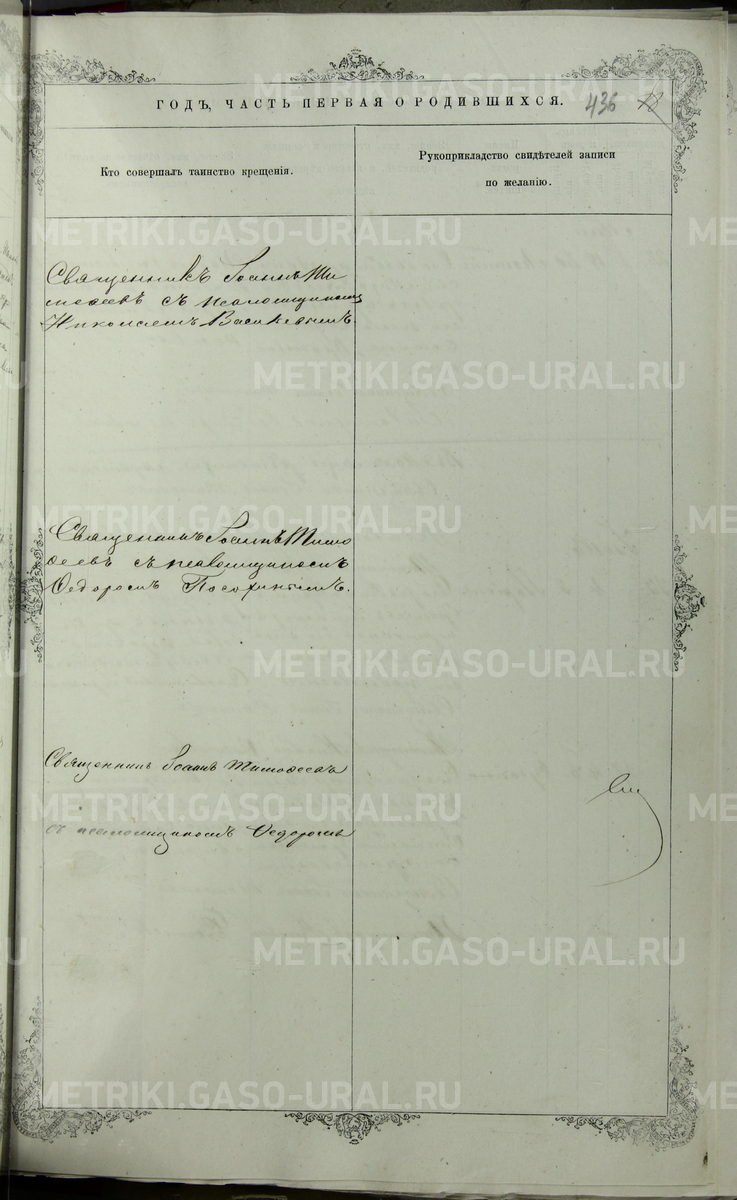 ГОДЪ, ЧАСТЬ ПЕРВАЯ О РОДИВШИХСЯ.
436
Кто совершалъ таинство крещенія.
Рукоприкладство свидѣтелей записи
по желанію.
Священникъ Іоаннъ Ти
моѳеевъ съ псаломщикомъ
Николаемъ
Священникъ Іоаннъ Тимо
ѳеевъ съ псаломщикомъ
Ѳедоромъ
Священникъ Іоаннъ Тимоѳеевъ
съ псаломщикомъ Ѳедоромъ
METRIKI.GASO-URAL.RU